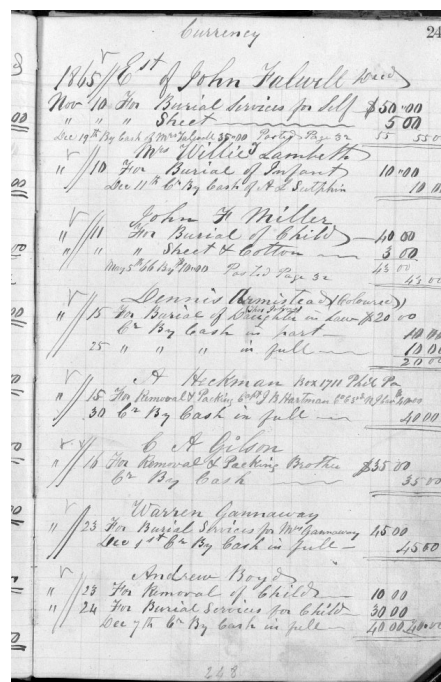 Currency
24
1865 Est of John Falwell Decd
Nov 10 For Burial Services for Self $50.00
" " " Sheet 5 00
Dec 19th By Cash of Mrs Falwell 35.00 Posted Page 32 55 55 0
Mrs Willie J Lambeth
" 10 For Burial of Infant 10.00
Dec 11th Cr By Cash of A L Sutphin 10 0
John F Miller
" 11 For Burial of Child 40 00
" " " Sheet & Cotton 3 00
May 5th 66 By 10.00 Posted Page 32 43 00 43 00
Dennis Armistead (Coloured)
" 15 For Burial of Daughter in Law $20 00
Cr By Cash in part 10 00
25 " " " in full 10 00
20 00
A Heckman Box 1711 Phila Pa
" 15 For Removal & Packing J B Hartman 40 00
30 Cr By Cash in full 40 00
C A Gilson
" 16 For Removal & Packing Brother $35 00
Cr By Cash 35 00
Warren Gannaway
" 23 For Burial Services for Mrs Gannaway 45 00
Dec 1st Cr By Cash in full 45 00
Andrew Boyd
" 23 For Removal of Child 10 00
" 24 For Burial Services for Child 30 00
Dec 7th Cr By Cash in full 40 00 40.00
248